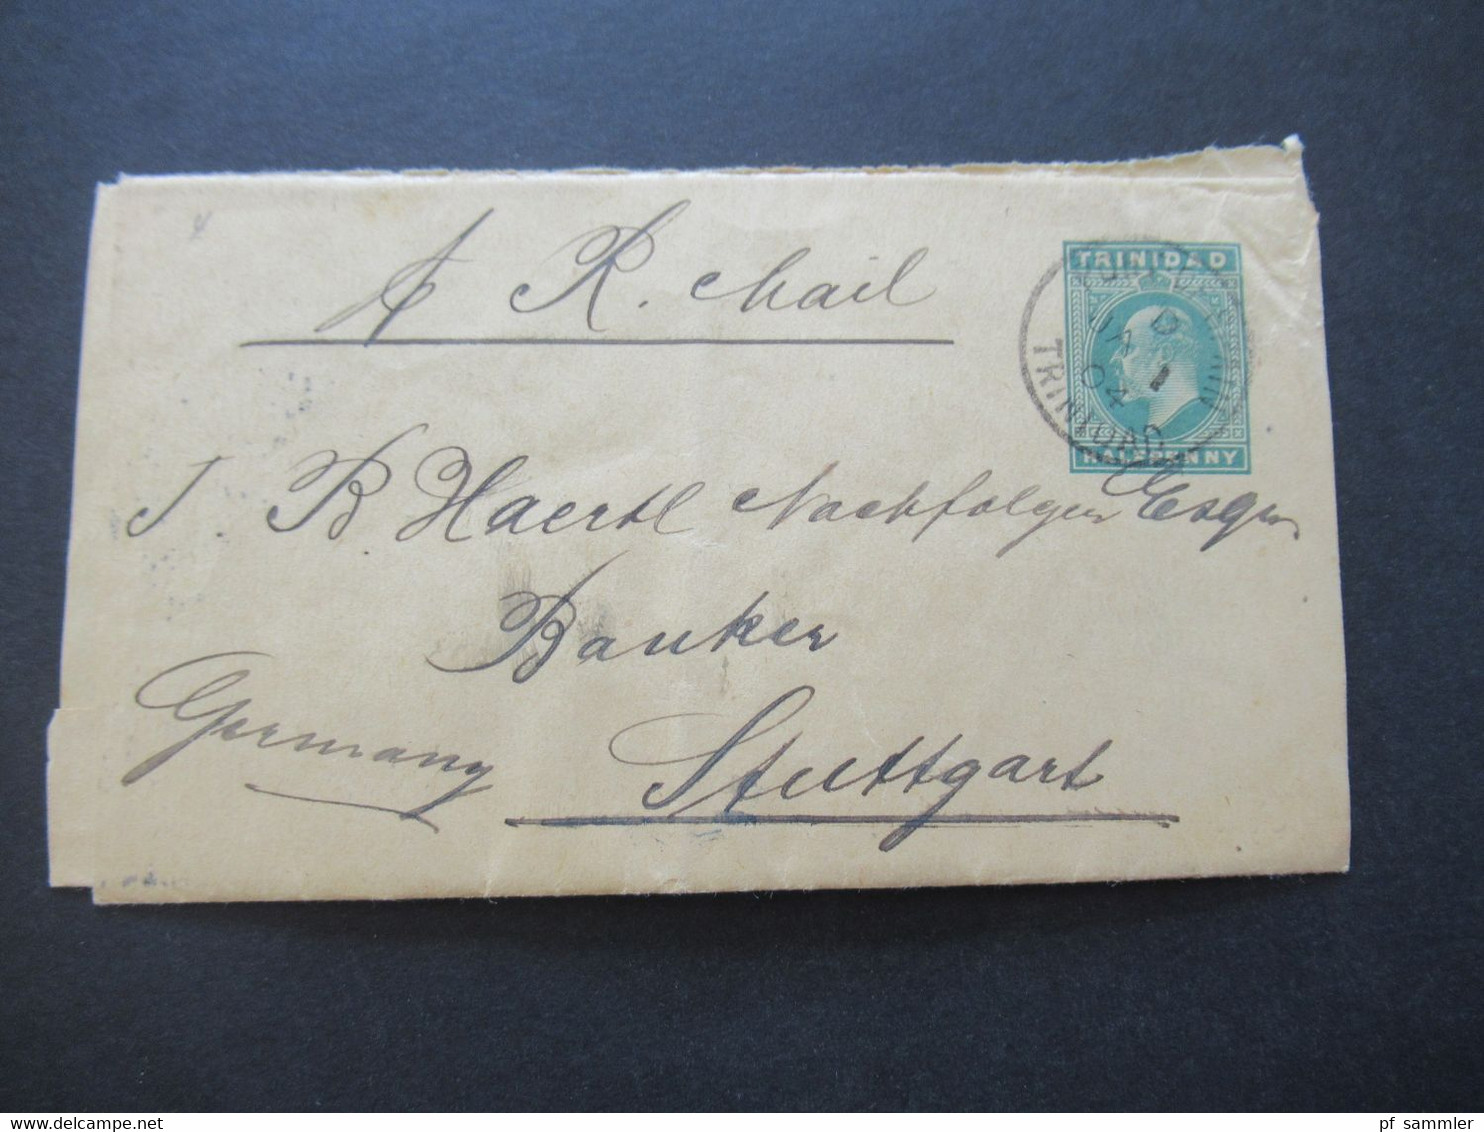 R. Mail
TRINIDAD
HALFPENNY
D
JA 1
04
TRINIDAD
J B Haertl Nachfolger Esqr
Banker
Germany
Stuttgart
www.delcampe.net
pf_sammler